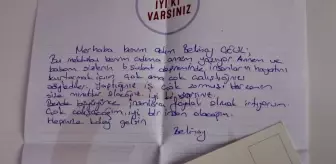 İYİ Kİ
VARSINIZ
Merhaba benim adım Belinay
Bu mektubu benim adıma annem yazıyor Annem ve
babam sizlerin 6 şubat depreminde insanların hayatını
kurtarmak için çok ama çok çalıştığınızı
söylediler. Yaptığınız iş çok zormuş her zaman
size minnettar olacağız. iyi ki varsınız.
Bende büyüyünce insanlara faydalı olmak istiyorum.
Çok çalışacağım, iyi bir insan olacağım.
Hepinize kolay gelsin
Belinay